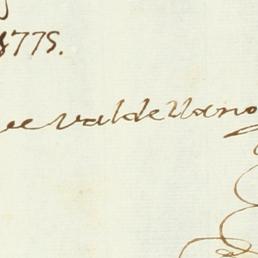 1775.
de Valdellano